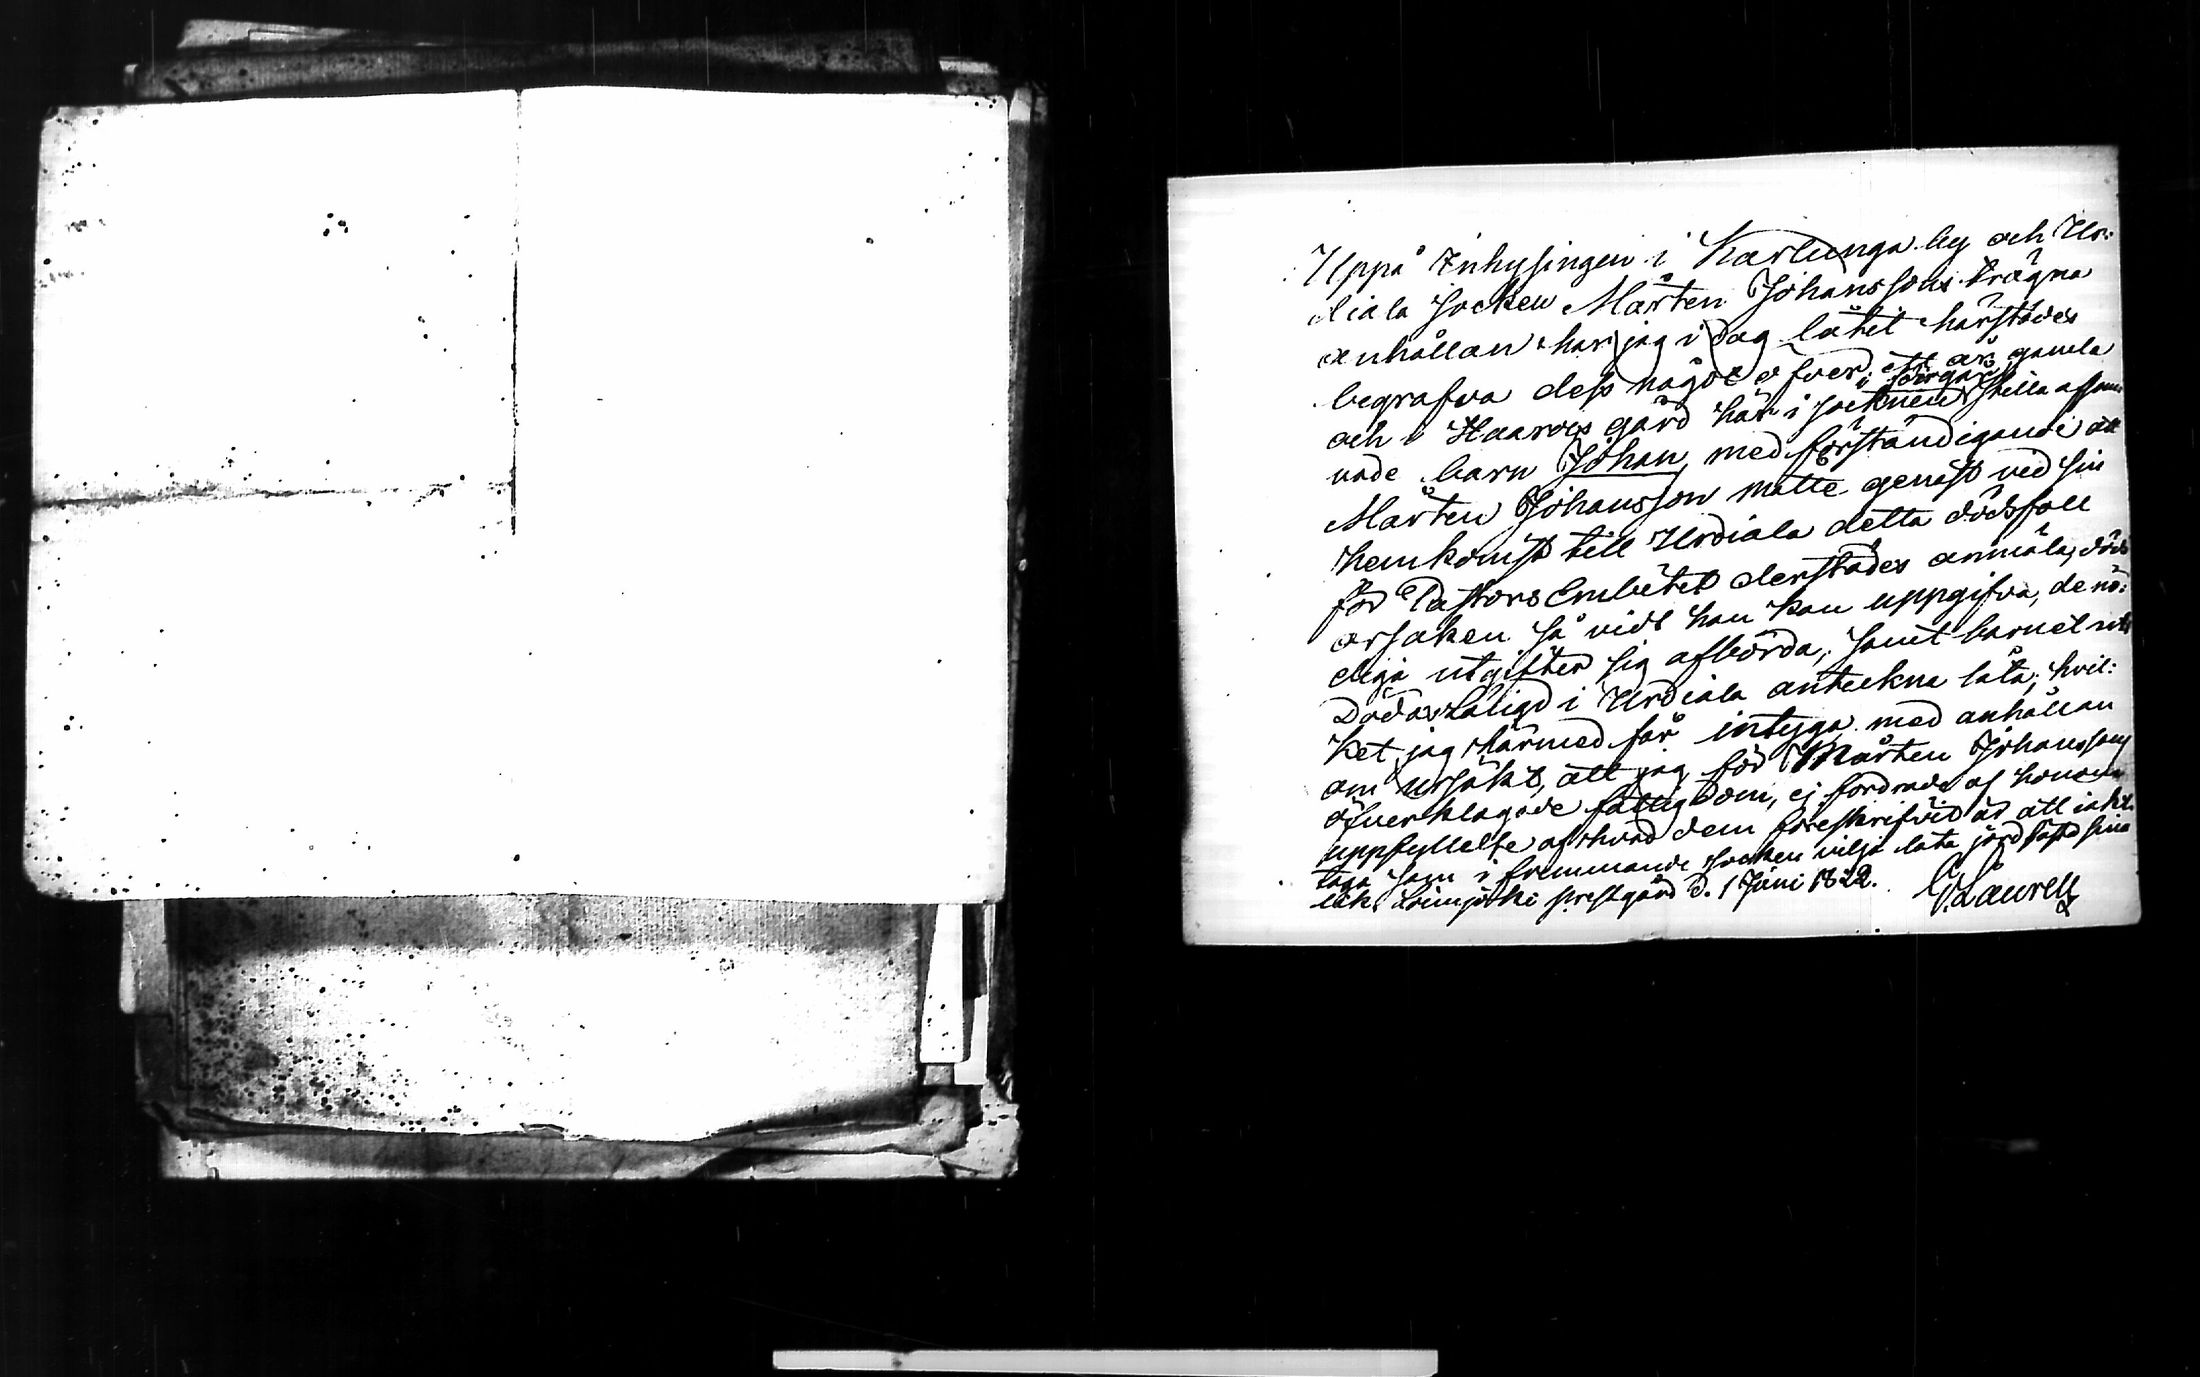 Uppå Inhysingen i Kartunga by och Ur:
diala socken Mårten Johanssons trägna
anhållan har jag i dag låtit härstädes
begrafva dess något öfver ett år gamla
och i Haarois gård här i socknen i förgår stilla afsom
nade barn Johan, med förständigande att
Mårten Johansson måtte genast vid sin
hemkomst till Urdiala detta dödsfall
för Pastors Embetet derstädes anmäla, döds
orsaken så vidt han kan uppgifva, de nö:
diga utgifter sig afbörda, samt barnet uti
Döda Längd i Urdiala anteckna låta; hvil:
ket jag härmed får intyga med anhållan
om ursäkt, att jag för Mårten Johanssons
öfverklagade fattigdom, ej fordrade af honom
uppfyllelse af hvad dem föreskrifvid är att iakt
taga som i främmande socken vilja låta jordfästa sina
lik. Loimijoki prestgård d. 1 Juni 1822.
G. Laurell